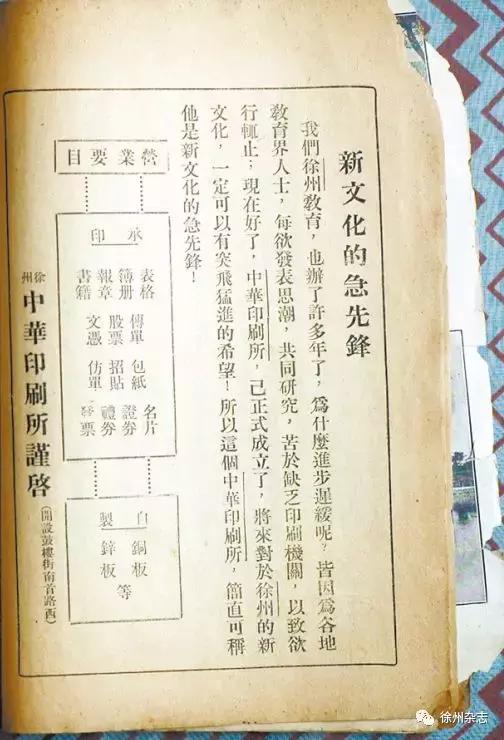 新文化的急先鋒
我們徐州教育，也辦了許多年了，爲什麼進步遲緩呢？皆因爲各地
教育界人士，每欲發表思潮，共同研究，苦於缺乏印刷機關，以致欲
行輒止；現在好了，中華印刷所，已正式成立了，將來對於徐州的新
文化，一定可以有突飛猛進的希望！所以這個中華印刷所，簡直可稱
他是新文化的急先鋒！
營業要目
承印
表格 簿册 報章 書籍
傳單 股票 文憑
包紙 招貼 仿單
名片 證券 禮券 發票
自製
銅板 鋅板 等
徐州中華印刷所謹啓（開設鼓樓街南首路西）
徐州杂志